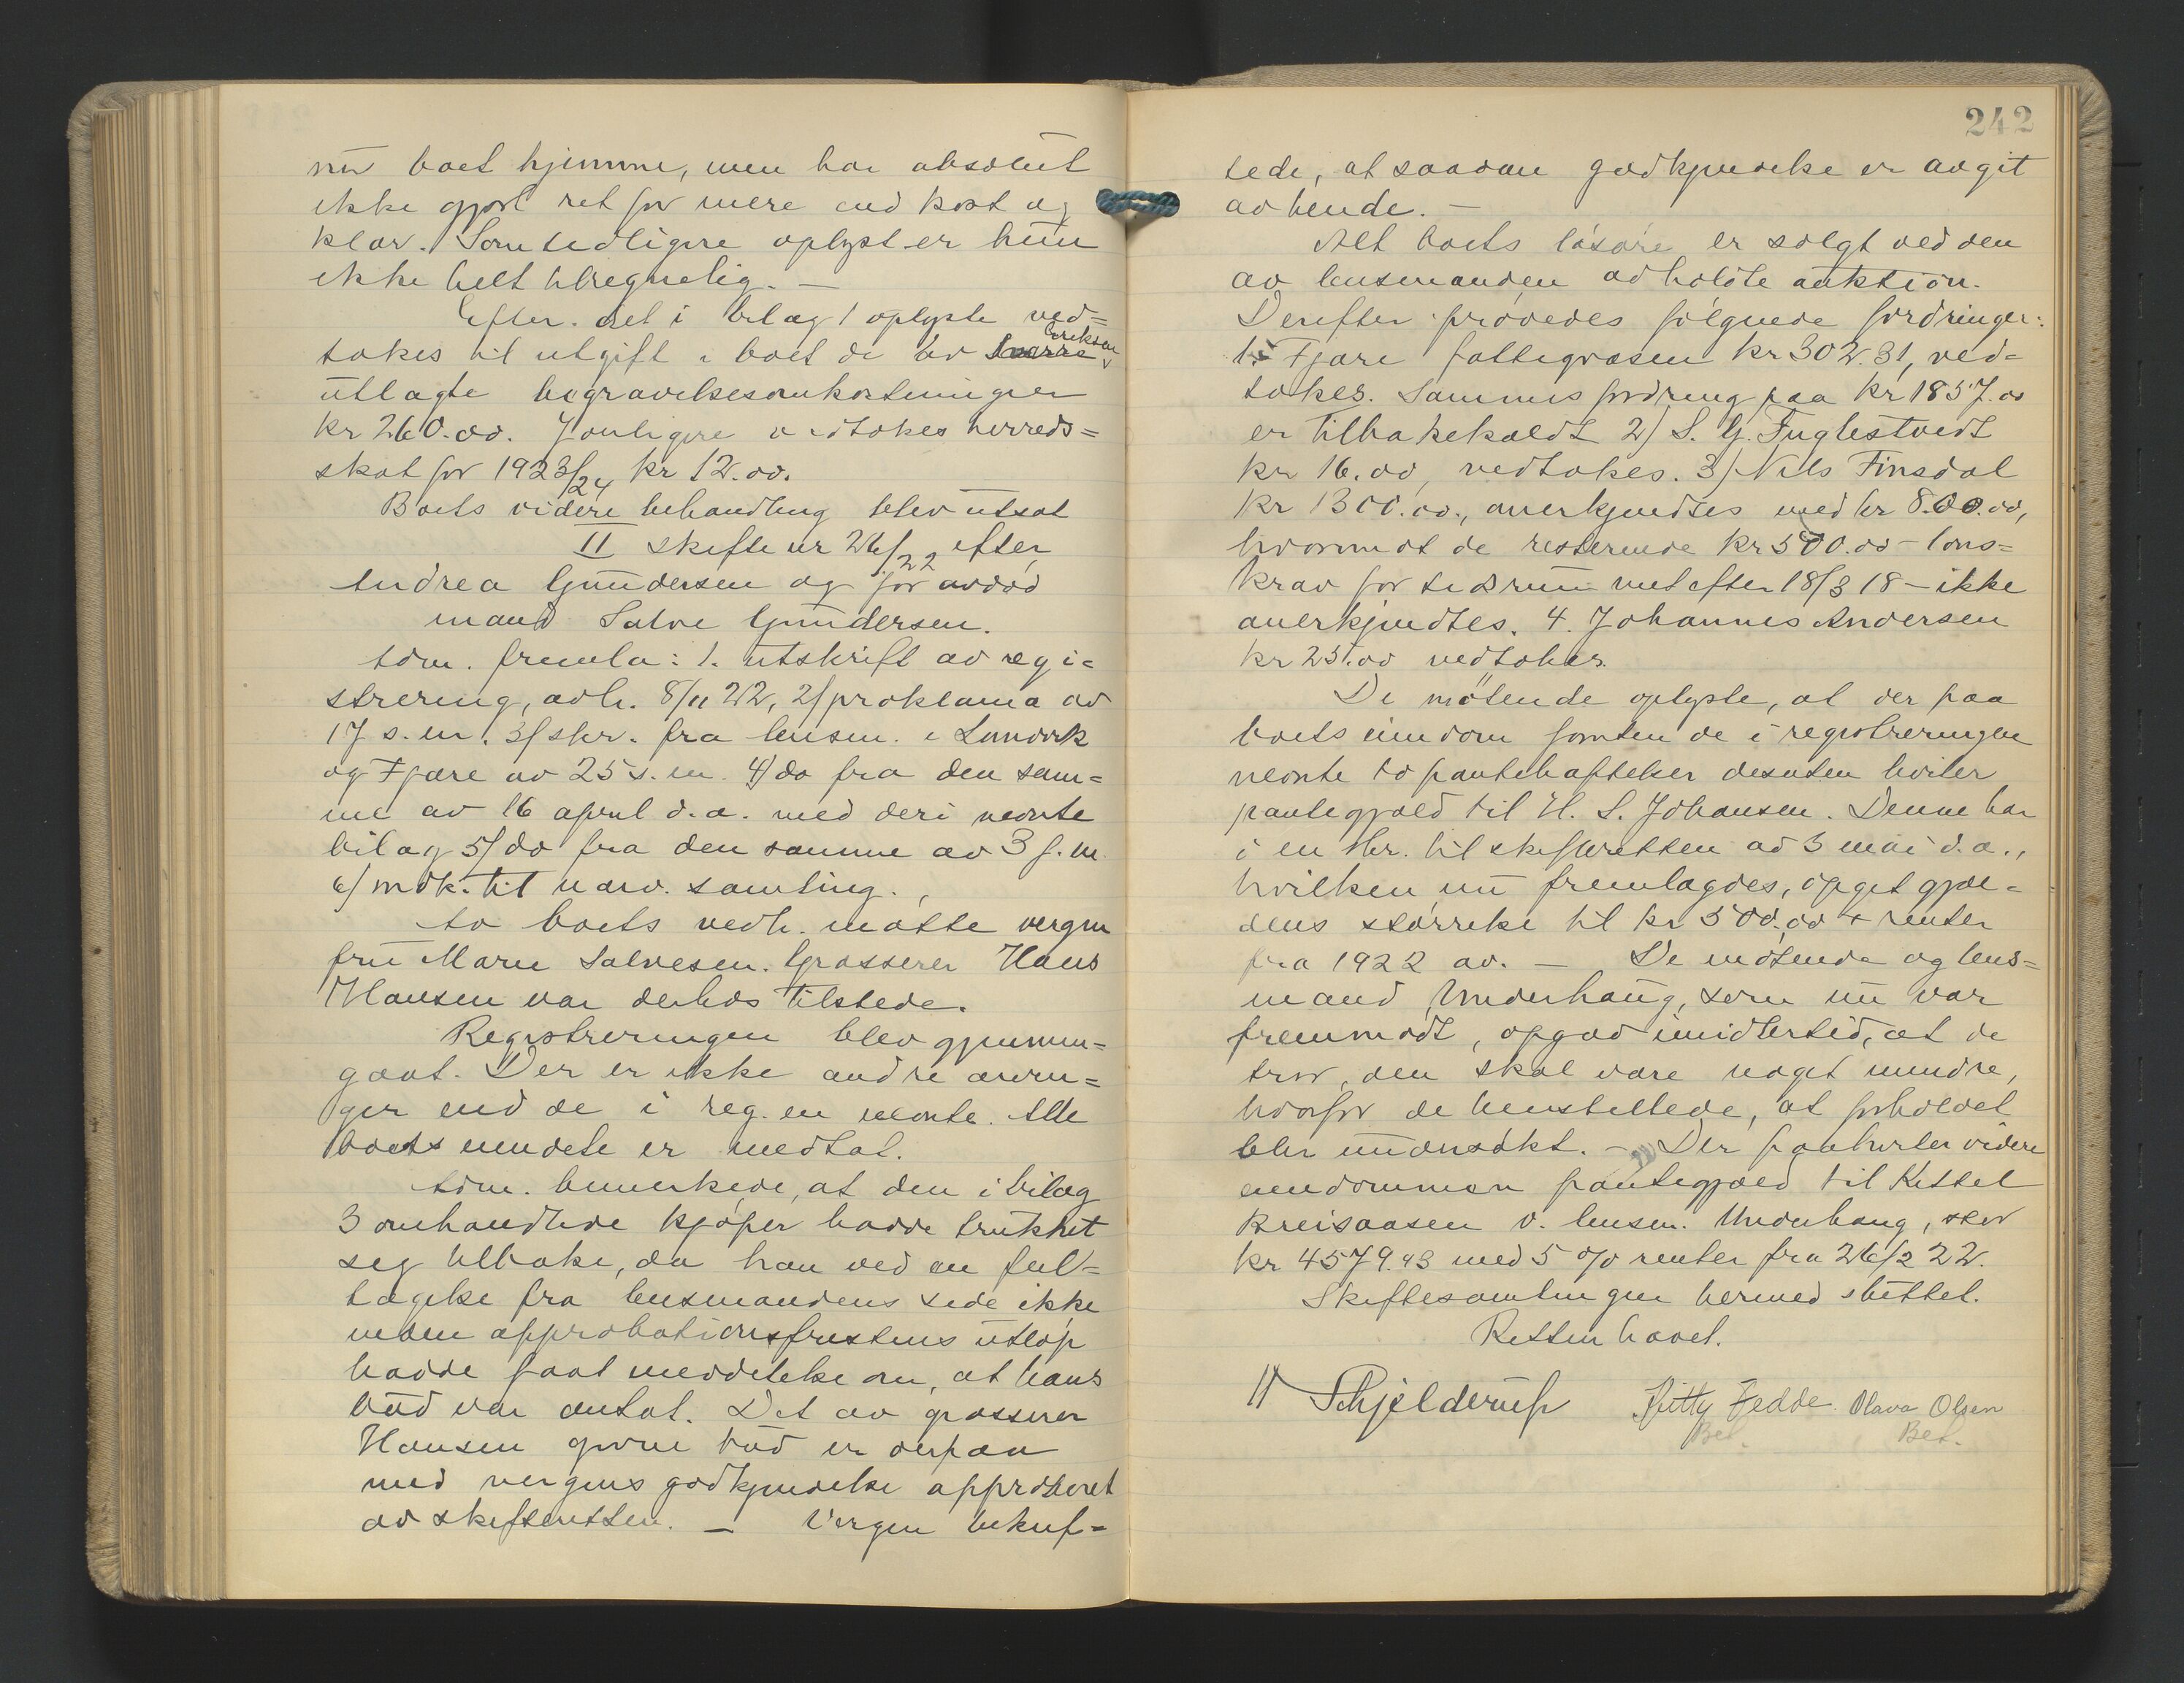 nu boet hjemme, men har absolut
ikke gjort ret for mere end kost og
klær. Som tidligere oplyst er hun
ikke helt tilregnelig. —
Efter det i bilag 1 oplyste ved=
tokes til utgift i boet de av Sverre Eriksen
utlagte begravelsesomkostninger
kr 260.00. Yderligere vedtokes herreds=
skat for 1923/24 kr 12.00.
Boets videre behandling blev utsat
II Skifte nr 26/22 efter
Andrea Gundersen og før avdød
mand Salve Gundersen.
Adm. fremla: 1. utskrift av regi=
strering, avh. 8/11 22, 2/ proklama av
17 s.m. 3/ skr. fra lensm. i Landvik
og Fjære av 25 s.m. 4/ do fra den sam=
me av 16 april d.a. med deri nevnte
bilag 5/ do fra den samme av 3 f.m.
6/ indk. til nærv. samling.
I boets vedk. møtte vergen
fru Marie Salvesen. Grosserer Hans
Hansen var derhos tilstede.
Registreringen blev gjennem=
gaat. Der er ikke andre arvin=
ger end de i reg.en nevnte. Alle
boets eiendele er medtat.
Adm. bemerkede, at den i bilag
3 omhandlede kjøper hadde trukket
seg tilbake, da han ved en feil=
tagelse fra lensmandens side ikke
inden approbationsfristens utløp
hadde faat meddelelse om, at hans
bud var antat. Det av grosserer
Hansen givne bud er derpaa
med vergens godkjendelse approberet
av skifteretten. — Vergen bekref=
242
tede, at saadan godkjendelse er avgit
av hende. —
Alt boets løsøre er solgt ved den
av lensmanden avholdte auktion.
Derefter prøvedes følgende fordringer:
1. Fjære fattigvæsen kr 302.31, ved=
tokes. Sammes fordring paa kr 1857.00
er tilbakekaldt 2/ S. G. Fuglestvedt
kr 16.00, vedtokes. 3/ Nils Finsdal
kr 1300.00., anerkjendtes med kr 800.00,
hvorimot de resterende kr 500.00 - løns=
krav for tidsrummet efter 18/3 18 - ikke
anerkjendtes. 4. Johannes Andersen
kr 25.00 vedtokes.
De møtende oplyste, at der paa
boets eiendom foruten de i registreringen
nevnte to pantehæftelser desuten hviler
pantegjæld til H. S. Johansen. Denne har
i en skr. til skifteretten av 3 mai d.a.,
hvilken nu fremlagdes, opgit gjæl=
dens størrelse til kr 500,00 + renter
fra 1922 av. — De møtende og lens=
mand Underhaug, som nu var
fremmødt, opgav imidlertid, at de
tror, den skal være noget mindre,
hvorfor de henstillede, at forholdet
blir undersøkt. — Der paahviler videre
eiendommen pantegjæld til Kittel
Kreisaasen v. lensm. Underhaug, stor
kr 4579.93 med 5 % renter fra 26/2 22.
Skiftesamlingen hermed sluttet.
Retten hævet.
H Schjelderup Kitty Fedde Olava Olsen
Bet. Bet.